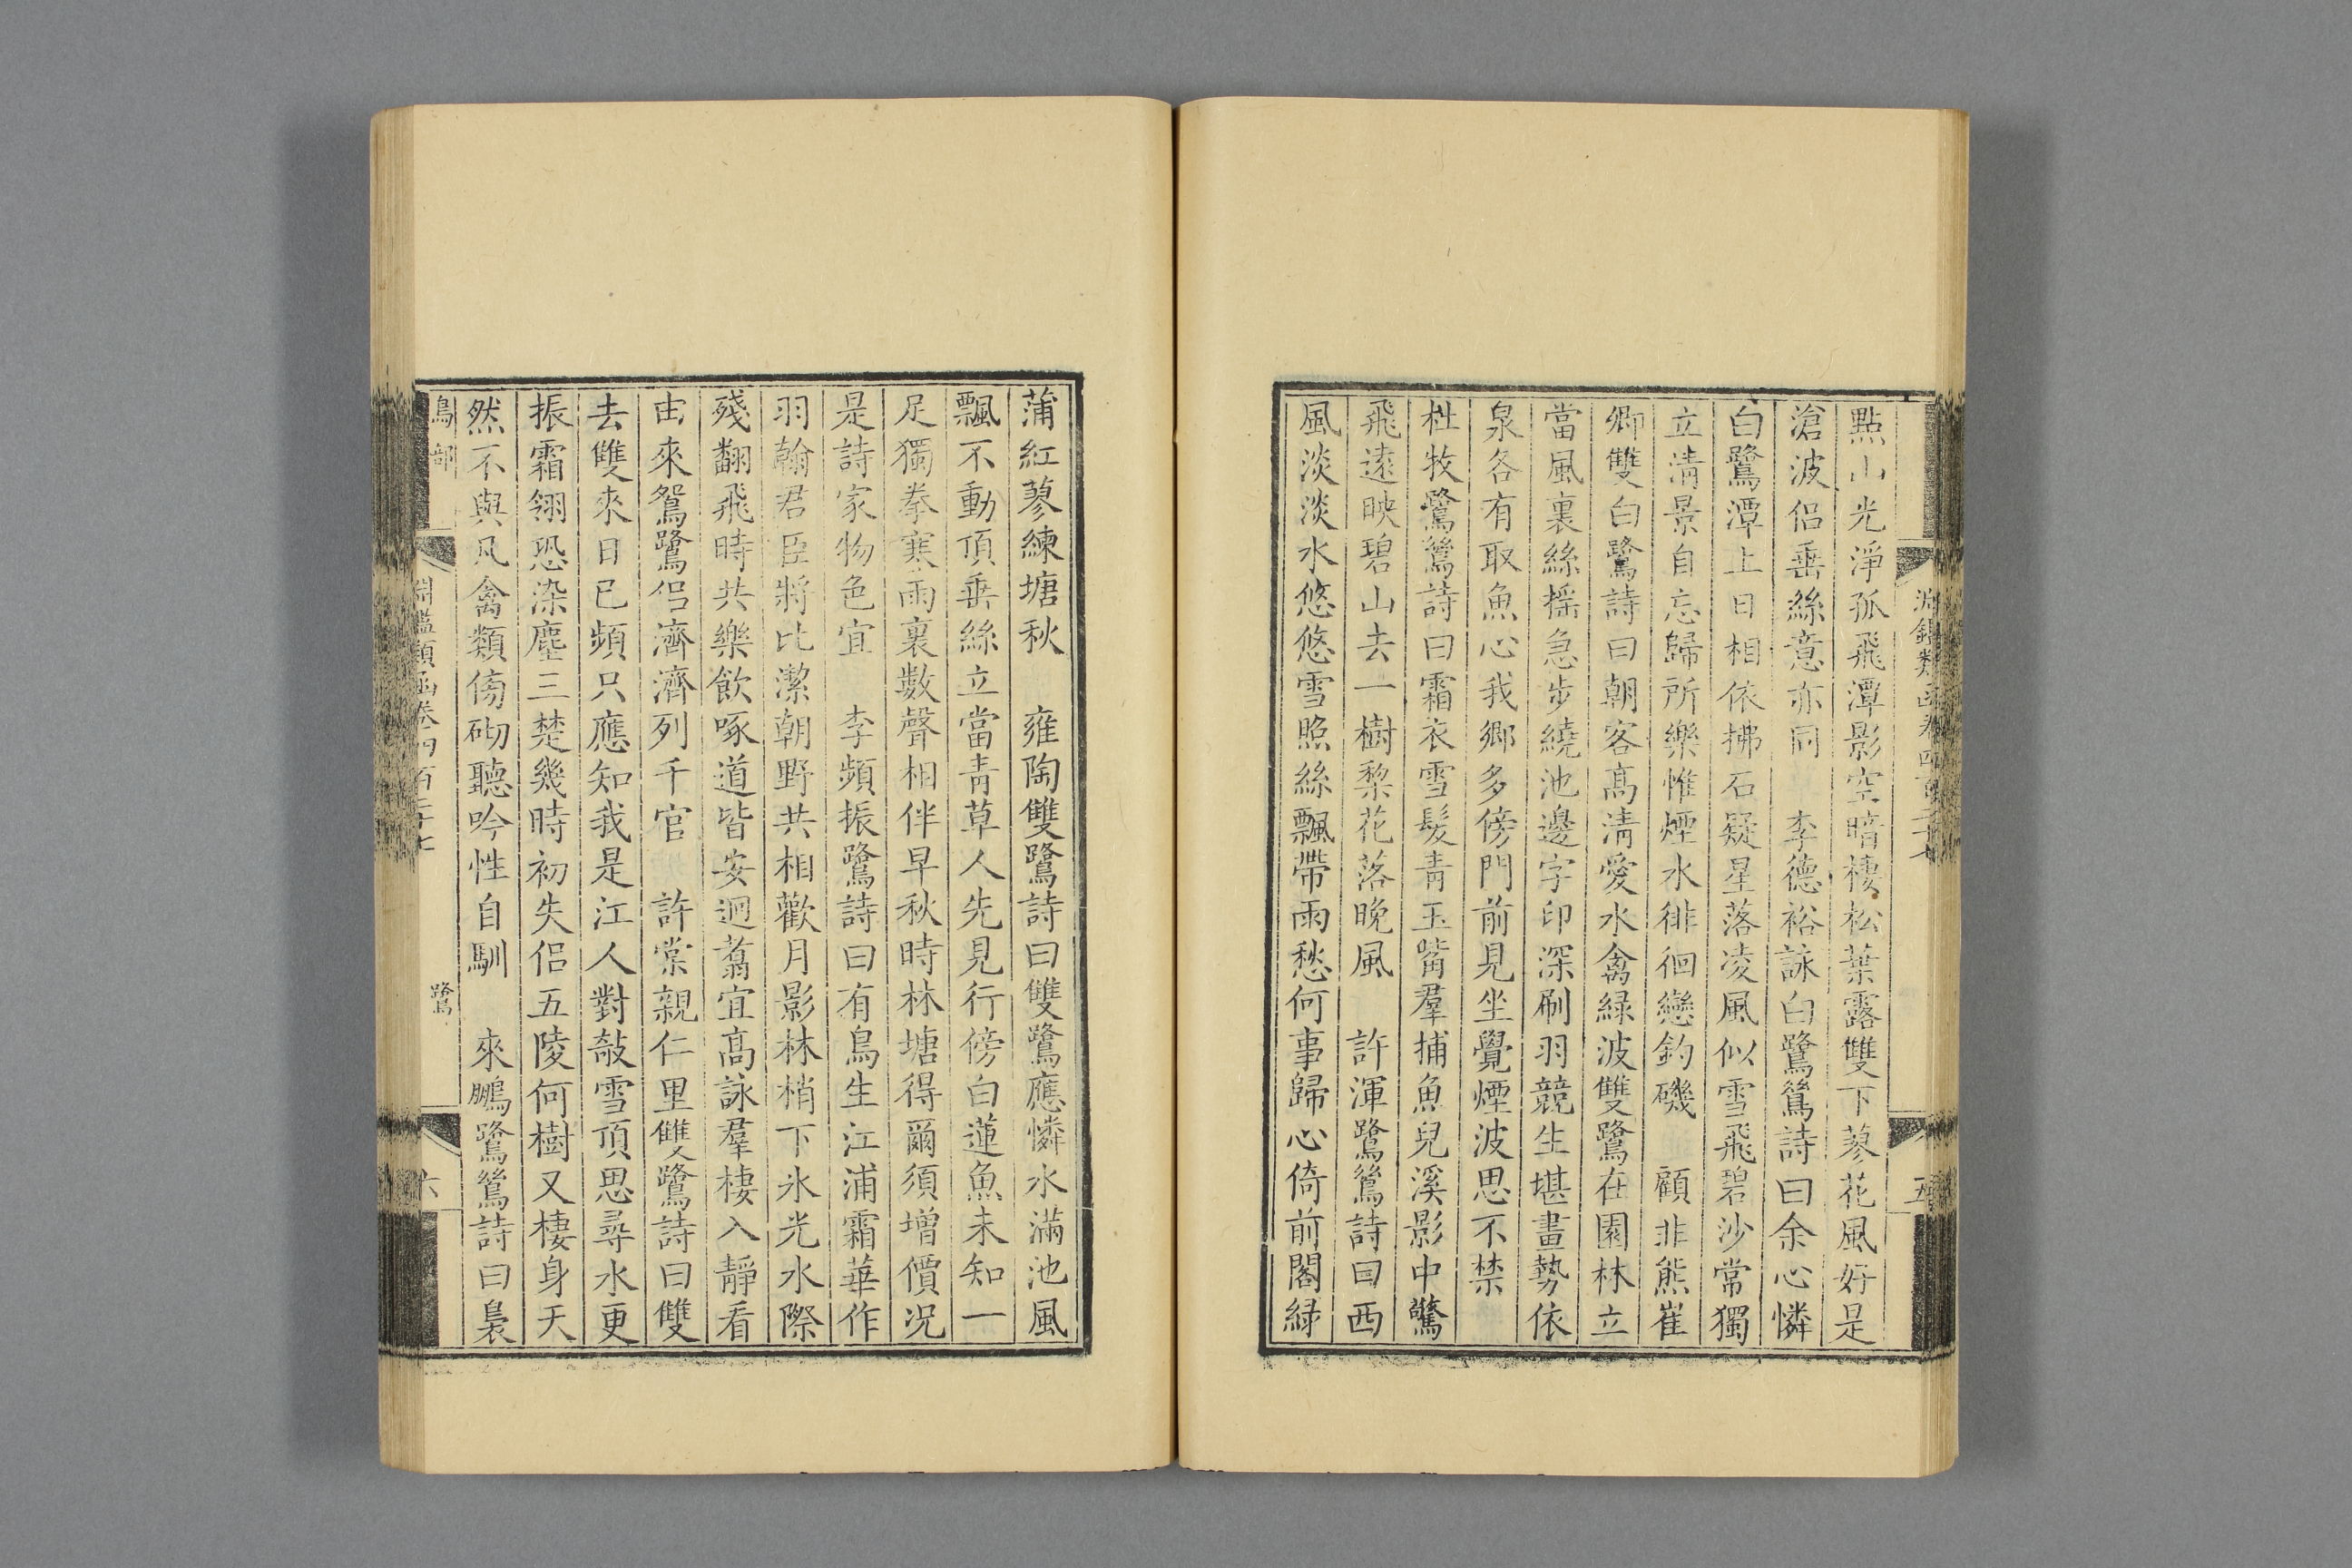 淵鑑類函卷四百二十七 五
點山光淨孤飛潭影空暗棲松葉露雙下蓼花風好是
滄波侶垂絲意亦同 李德裕詠白鷺鷥詩曰余心憐
白鷺潭上日相依拂石疑星落凌風似雪飛碧沙常獨
立清景自忘歸所樂惟煙水徘徊戀釣磯 顧非熊崔
卿雙白鷺詩曰朝客高清愛水禽綠波雙鷺在園林立
當風裏絲搖急步繞池邊字印深刷羽競生堪畫勢依
泉各有取魚心我鄉多傍門前見坐覺煙波思不禁
杜牧鷺鷥詩曰霜衣雪髮青玉觜羣捕魚兒溪影中驚
飛遠映碧山去一樹梨花落晚風 許渾鷺鷥詩曰西
風淡淡水悠悠雪照絲飄帶雨愁何事歸心倚前閣綠
蒲紅蓼練塘秋 雍陶雙鷺詩曰雙鷺應憐水滿池風
飄不動頂垂絲立當青草人先見行傍白蓮魚未知一
足獨拳寒雨裏數聲相伴早秋時林塘得爾須增價況
是詩家物色宜 李頻振鷺詩曰有鳥生江浦霜華作
羽翰君臣將比潔朝野共相歡月影林梢下氷光水際
殘翻飛時共樂飲啄道皆安迥翥宜高詠羣棲入靜看
由來鴛鷺侶濟濟列千官 許棠親仁里雙鷺詩曰雙
去雙來日已頻只應知我是江人對敧雪頂思尋水更
振霜翎恐染塵三楚幾時初失侶五陵何樹又棲身天
然不與凡禽類傍砌聽吟性自馴 來鵬鷺鷥詩曰裊
鳥部 淵鑑類函卷四百二十七 鷺 六